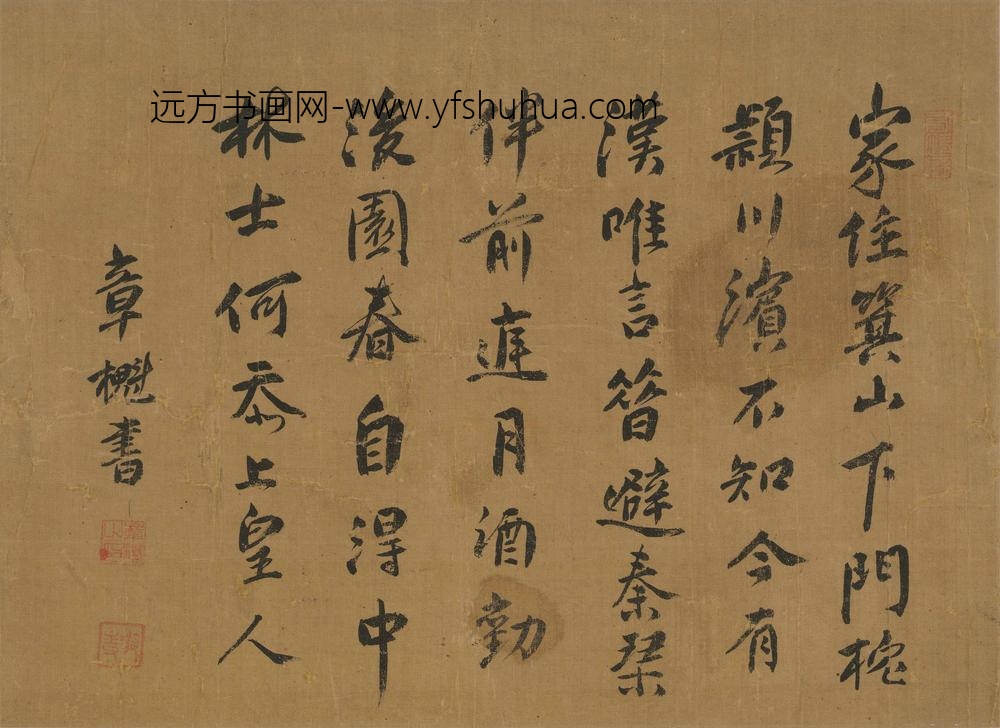 远方书画网-www.yfshuhua.com
家住箕山下門枕
潁川濱不知今有
漢唯言昔避秦琹
伴前庭月酒勸
後園春自得中
林士何忝上皇人
章櫆書